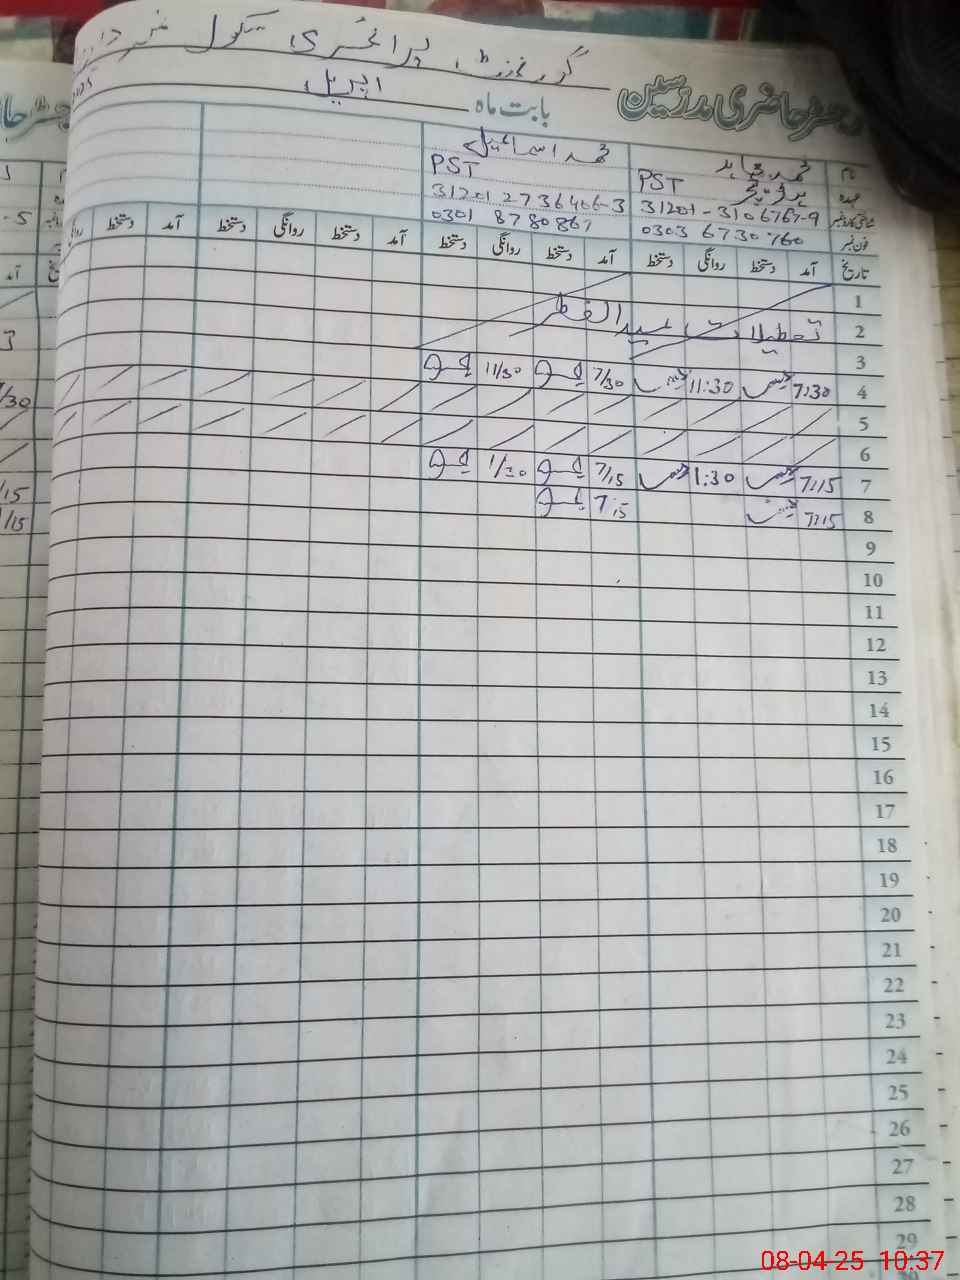 گورنمنٹ پرائمری سکول
رجسٹر حاضری مدرسین
بابت ماہ اپریل
نام محمد مجاہد محمد اسماعیل
عہدہ PST ہیڈ ٹیچر PST
شناختی کارڈ نمبر 31201-3106767-9 31201 2736406-3
فون نمبر 0303 6730760 0301 8780867
تاریخ آمد دستخط روانگی دستخط آمد دستخط روانگی دستخط آمد دستخط روانگی دستخط آمد دستخط
1
2 تعطیلات عید الفطر
3
4 7:30 11:30 7/30 11/30
5
6
7 7:15 1:30 7/15 1/30
8 7:15 7:15
9
10
11
12
13
14
15
16
17
18
19
20
21
22
23
24
25
26
27
28
29
08-04-25 10:37